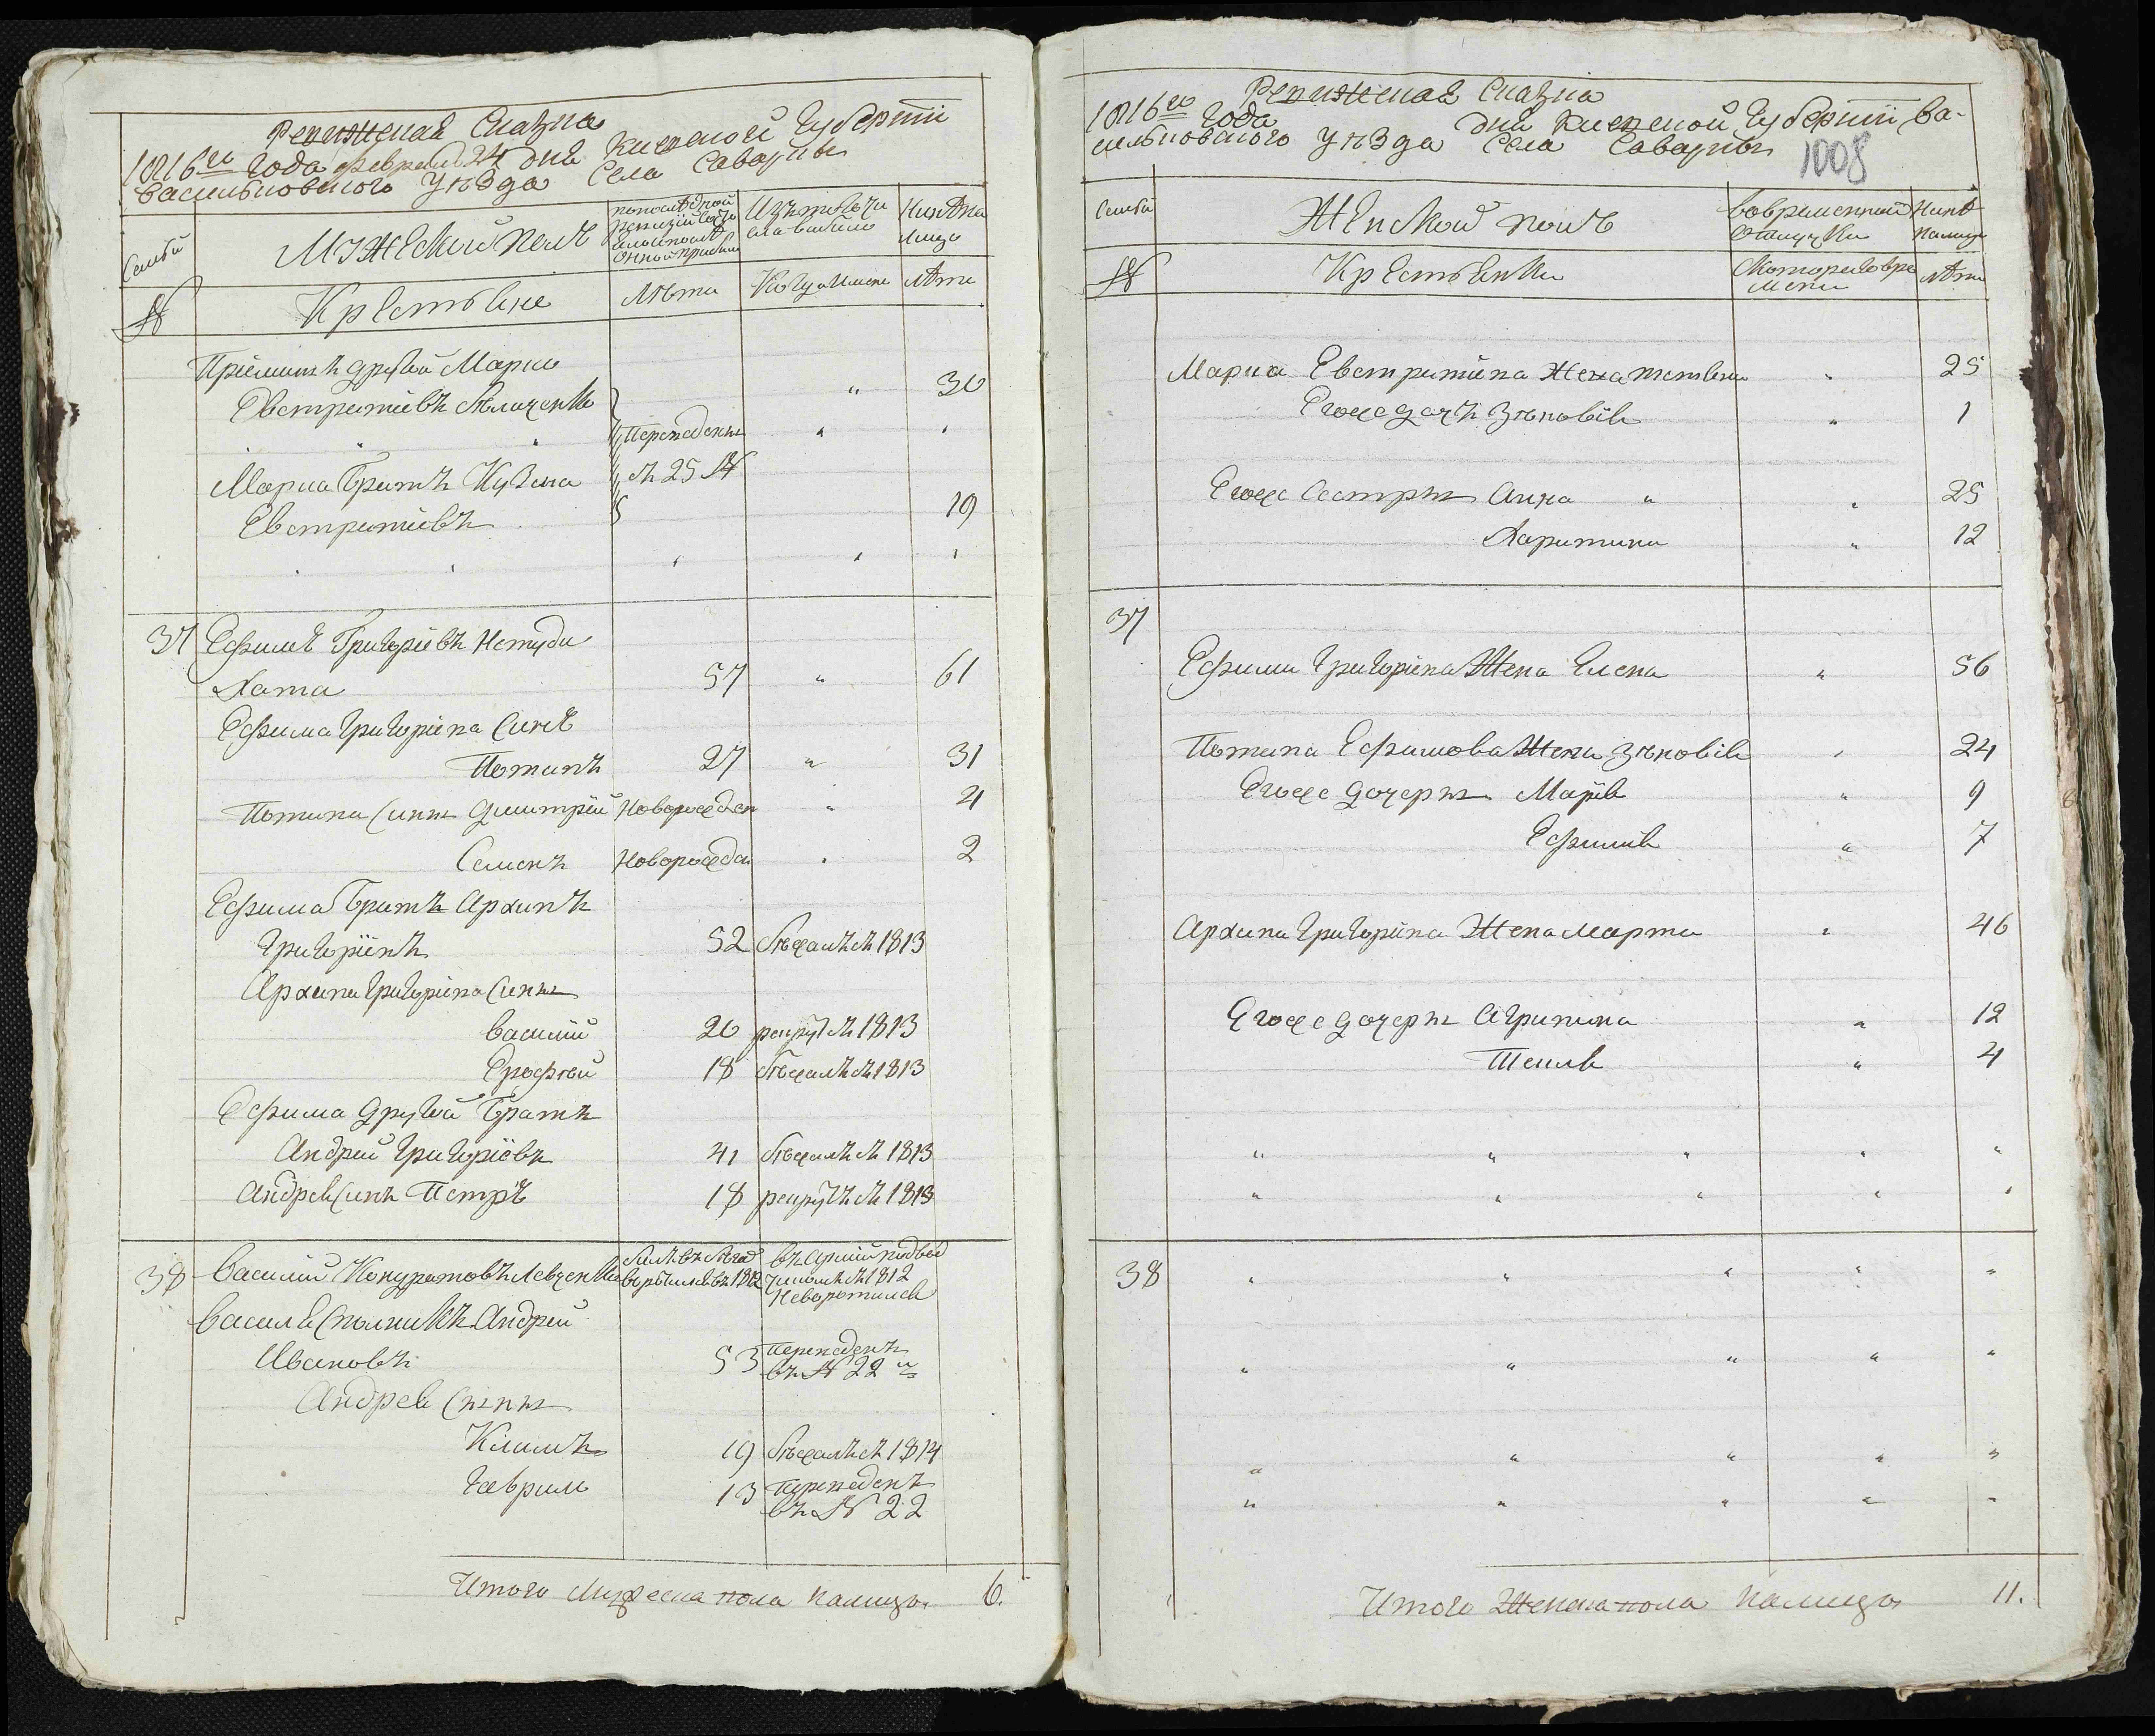 Ревижская Сказка
1816го Года февраля 24 дня Киевской Губернии
Васильковского Уезда Села Саварки
Семьи
Мужеский полъ
по последной ревизии состояло и после оной прибыло
Изъ того числа выбыло
Ныне на лицо
№
Крестьяне
Лета
Когда именно
Лета
Пріемышъ другой Марко
Евстратіевъ 30
Переведены
съ 25 №
Марка братъ Кузма
Евстратіевъ 19
37 Ефимъ Григоріевъ Непуди
Хата 57 " 61
Ефима Григоріева Синъ
Потапъ 27 " 31
Потапа Сины Дмитрій Новорожден " 4
Семенъ Новорожден " 2
Ефима братъ Архипъ
Григоріевъ 52 Бежалъ съ 1813
Архипа Григоріева Сины
Василій 20 рекрут съ 1813
Ерофей 18 бежалъ съ 1813
Ефима другой братъ
Андрей Григоріевъ 41 бежалъ съ 1813
Андрея Синъ Петръ 18 рекрутъ съ 1813
38 Василій Кондратовъ Левченко
въ 1812
въ армій подвод
чикомъ съ 1812
Неворотился
Василя Спольникъ Андрей
Ивановъ 53 Переведенъ
въ № 22й
Андрея Сыны
Климъ 19 бежалъ съ 1814
Гаврило 13 Переведенъ
въ № 22
Итого мужеска пола налицо. 6.
Ревижская Сказка
1816го Года дня Киевской Губернии, Ва-
сильковского Уезда Села Саварки
1008
Семьи
Женской полъ
Вовременной отлучки
Ныне налицо
№
Крестьянки
Скоторого времени
Лета
Марка Евстратіева Жена Татьяна " 25
Егоже дочъ Зеновія " 1
Егоже Сестры Анна " " 25
Харитина " 12
37
Ефима Григоріева Жена Елена " 56
Потапа Ефимова Жена Зеновія " 24
Егоже дочеры Марія " 9
Ефимія " 7
Архипа Григоріева Жена Марта " 46
Егоже дочеры Агрипина " 12
Текля " 4
" " " " "
" " " " "
38 " " " " "
" " " " "
" " " " "
" " " " "
Итого Женска пола налицо 11.